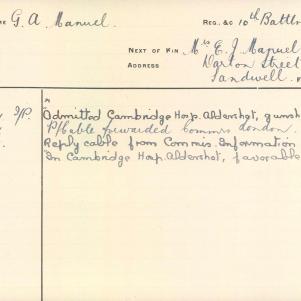 ME G. A. Manuel. REG. &c 10th Battln
NEXT OF KIN Mrs E. J. Manuel
ADDRESS Warton Street
Sandwell.
S/P. Admitted Cambridge Hosp. Aldershot, gunsh
P/Cable forwarded Commis London.
Reply cable from Commis. Information
"In Cambridge Hosp. Aldershot, favorable